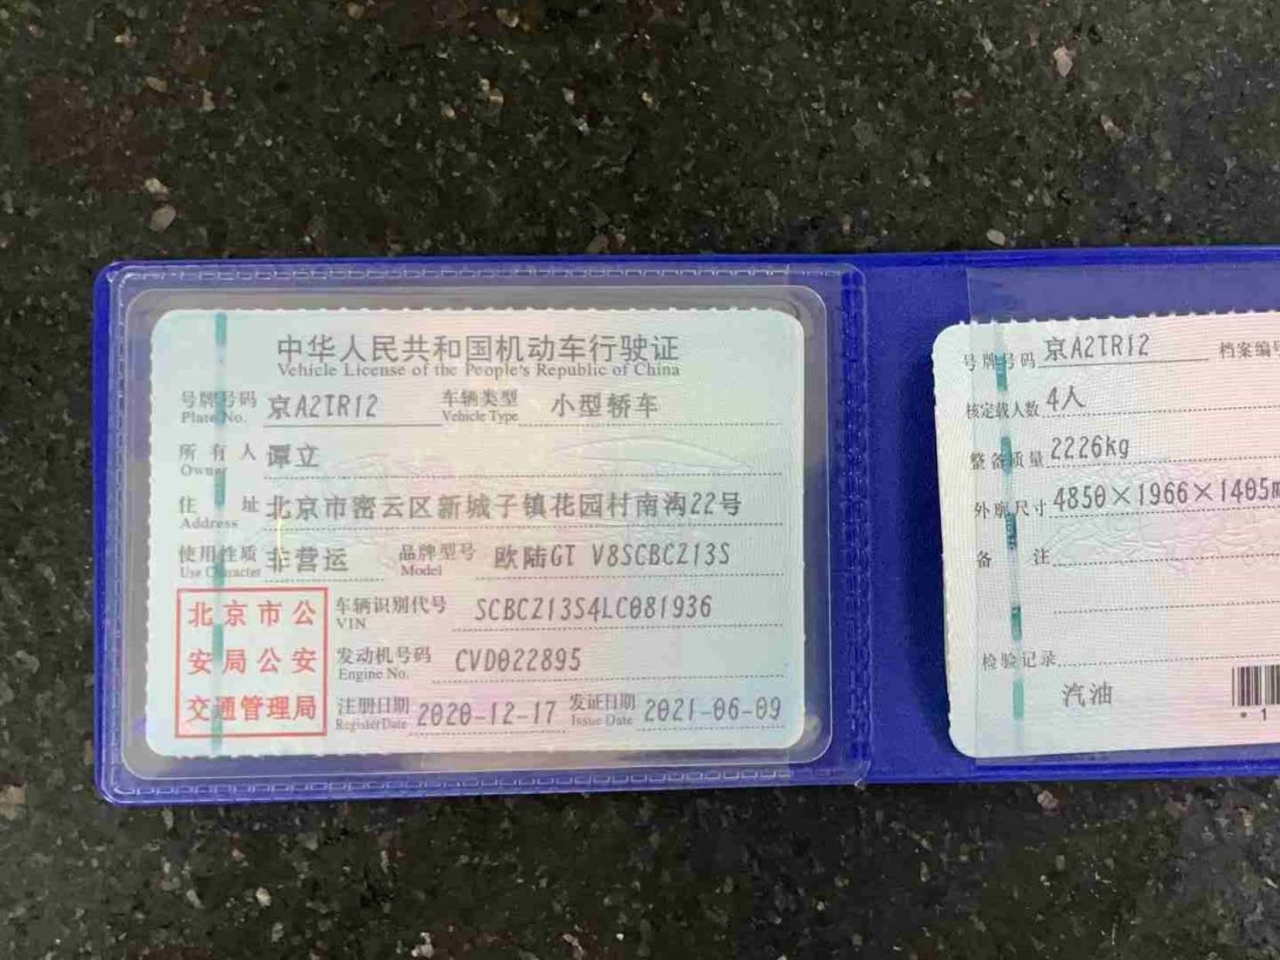 中华人民共和国机动车行驶证
Vehicle License of the People's Republic of China
号牌号码 京A2TR12 车辆类型 小型轿车
Plate No. Vehicle Type
所有人 谭立
Owner
住址 北京市密云区新城子镇花园村南沟22号
Address
使用性质 非营运 品牌型号 欧陆GT V8SCBCZ13S
Use Character Model
北京市公
安局公安
交通管理局
车辆识别代号 SCBCZ13S4LC081936
VIN
发动机号码 CVD022895
Engine No.
注册日期 2020-12-17 发证日期 2021-06-09
Register Date Issue Date
号牌号码 京A2TR12 档案编号
核定载人数 4人
整备质量 2226kg
外廓尺寸 4850×1966×1405m
备注
检验记录
汽油
*1